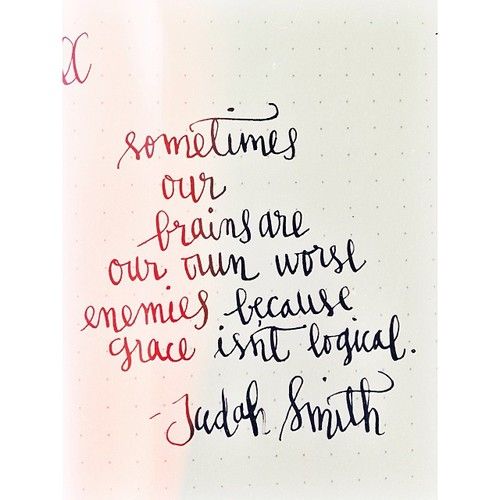 sometimes
our
brains are
our own worse
enemies because
grace isn't logical.
- Judah Smith